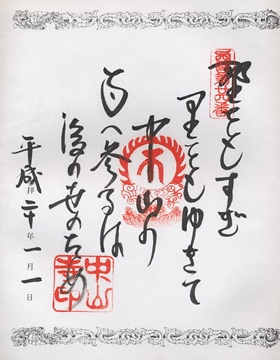 野をもすぎ
里をもゆきて
中山の
寺へ参るは
後の世のため
中山寺印
平成二十年一月一日